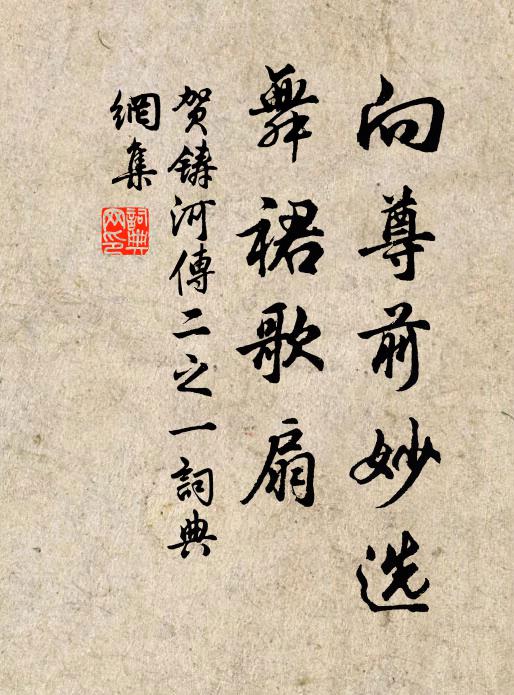 向尊前妙选
舞裙歌扇
贺铸河傳二之一詞典
網集
詞典
网印